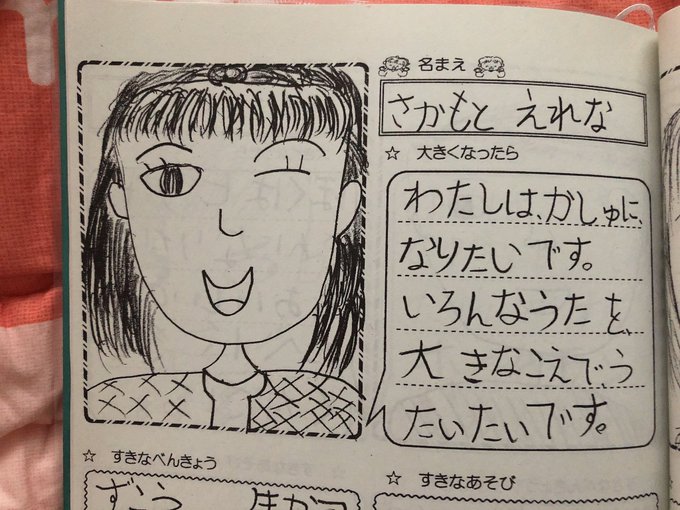 名まえ
さかもと えれな
☆ 大きくなったら
わたしは、かしゅに、
なりたいです。
いろんなうたを、
大きなこえで、う
たいたいです。
☆ すきなべんきょう
ずこう
☆ すきなあそび